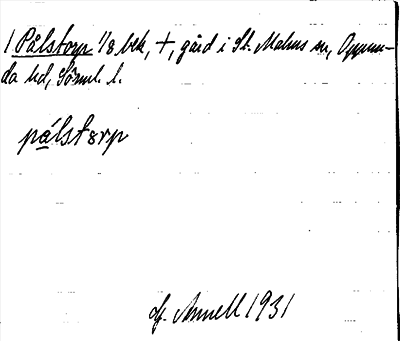 1 Pålstorp 1/8 bek, +, gård i St. Malms sn, Oppun-
da hd, Söml. l.
pålstørp
af. Annell 1931